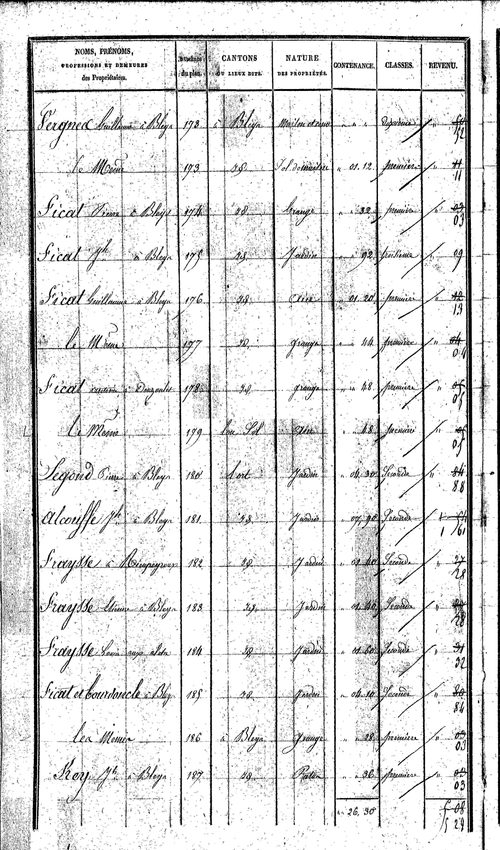 NOMS, PRÉNOMS, PROFESSIONS ET DEMEURES des Propriétaires. NUMÉROS du plan. CANTONS OU LIEUX DITS. NATURE DES PROPRIÉTÉS. CONTENANCE. CLASSES. REVENU.
Vergnes Guillaume à Bleys 173 à Bleys Maison et cour " " " " 52
le Même 173 id Sol 01.12 première " 11
Ficat Pierre à Bleys 174 id Grange " 32 première " 03
Ficat Jh à Bleys 175 id Jardin " 92 première " 09
Ficat Guillaume à Bleys 176 id Aire 01.20 première " 13
le Même 177 id grange " 44 première " 04
Ficat à 178 id grange " 48 première " 05
le Même 179 Sol Aire " 48 première 05
Segond Pierre à Bleys 180 l'ort Jardin 04.30 Seconde " 88
Alcouffe Jh à Bleys 181 id Jardin 07.90 Seconde 1 61
Fraysse à 182 id Jardin 01.40 Seconde " 28
Fraysse Etienne à Bleys 183 id Jardin 01.40 Seconde " 28
Fraysse Louis 184 id Jardin 01.60 Seconde " 32
Ficat et Courdoncle à Bleys 185 id Jardin 04.10 Seconde " 84
les Mêmes 186 à Bleys Grange " 28 première " 03
Rey Jh à Bleys 187 id Patus " 36 première " 03
26.30 5 29